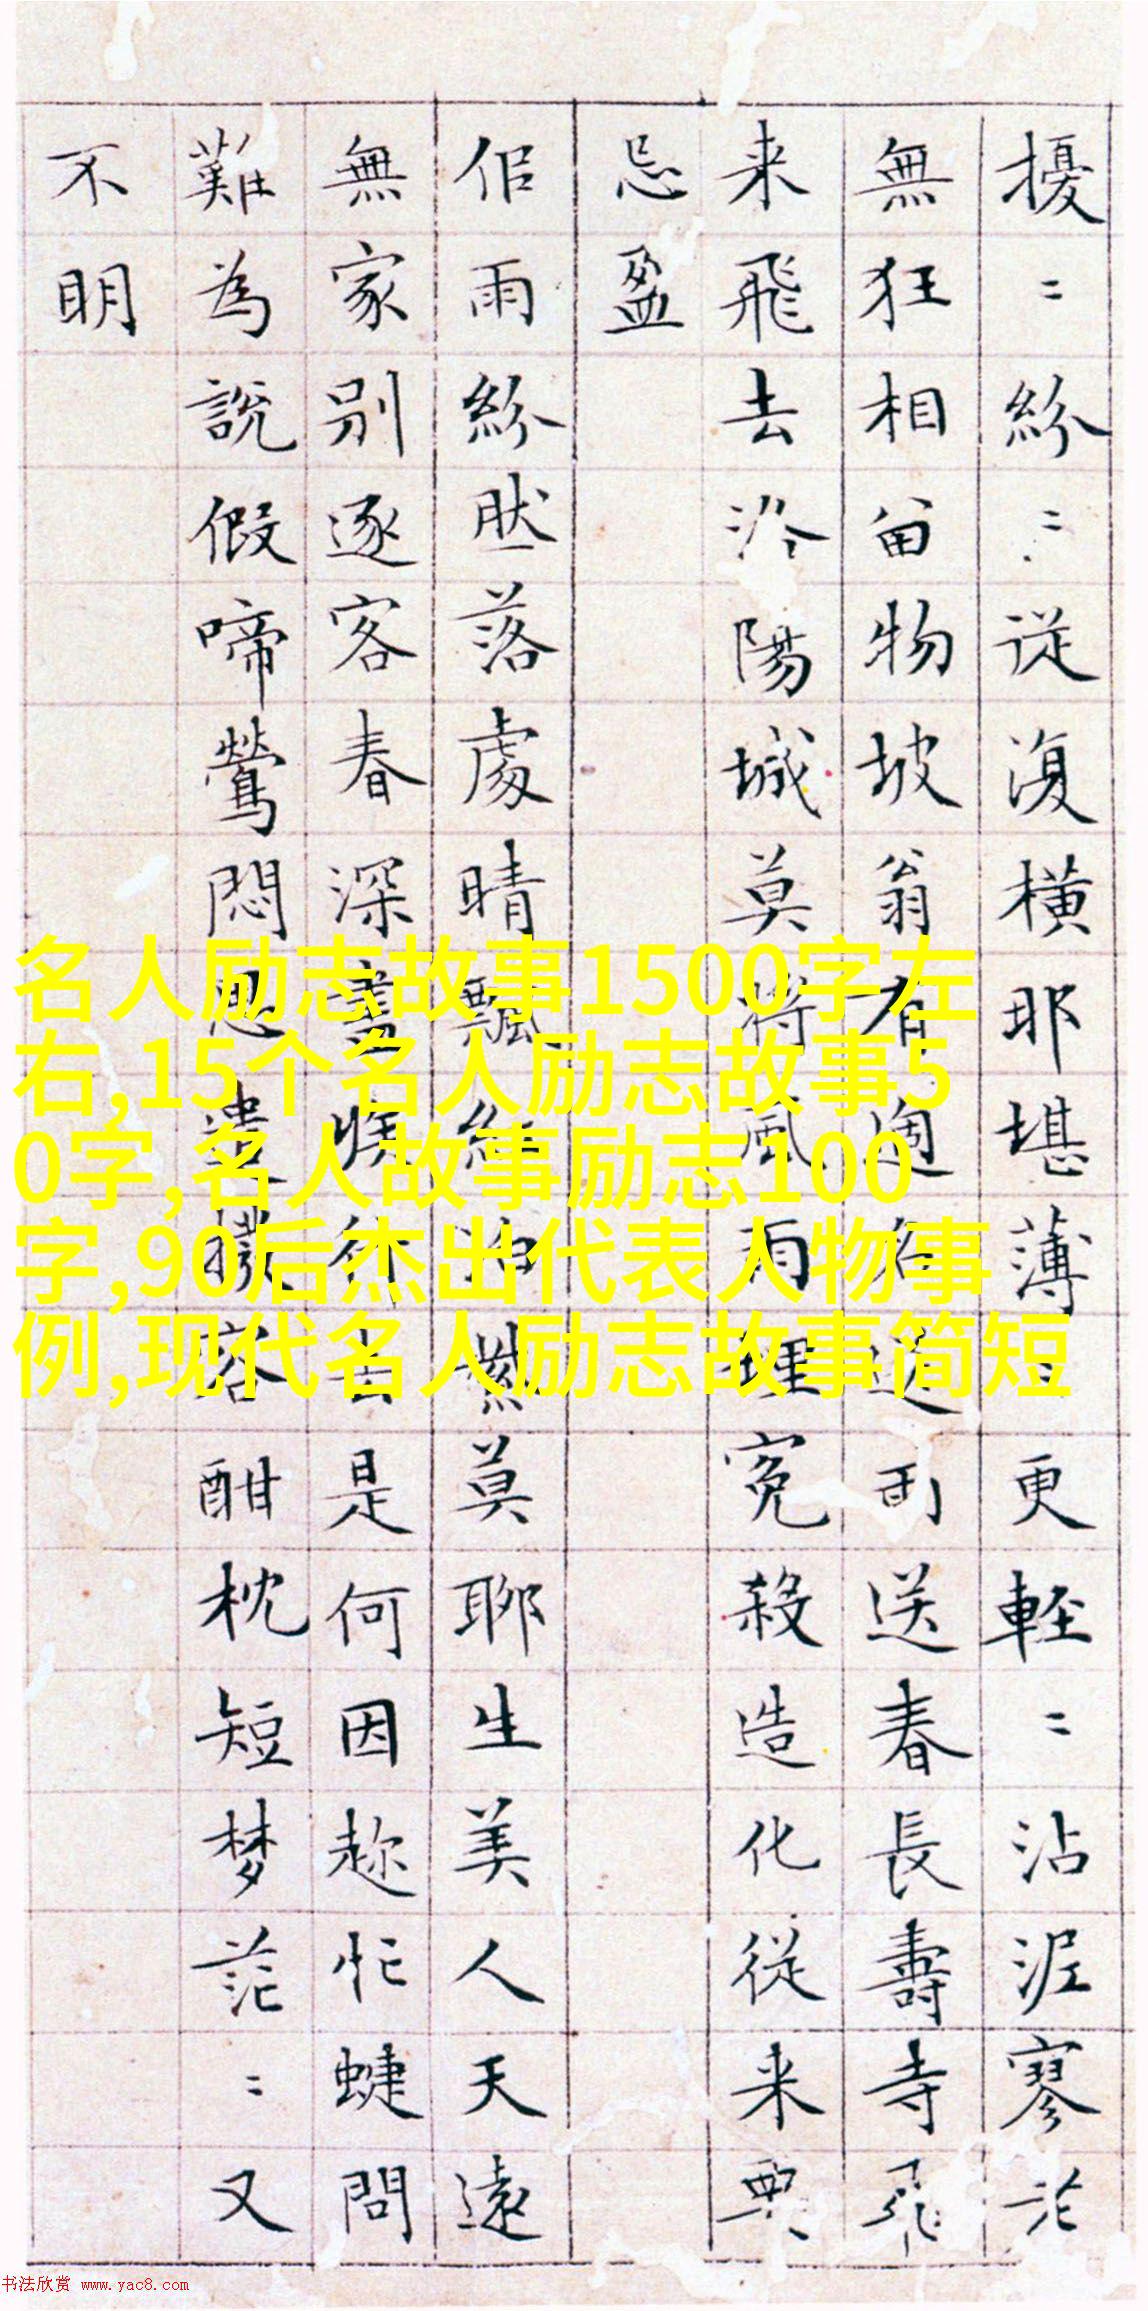 擾〻紛〻從復橫耶堪薄更輕〻沾泥寥
無狂相留物坡翁有送送春長壽寺飛
来飛去洛陽城莫将風雨埋冤殺造化從来
忌盈
佀雨紛肰落處晴飄紅泊莫聊生美人天遠
無家別逐客春深盡族行去是何因趂忙蜨問
難為說假啼鶯悶思遣撥容酣枕短梦茫〻又
不明
名人励志故事1500字左
右,15个名人励志故事5
0字,名人故事励志100
字,90后杰出代表人物事
例,现代名人励志故事简短
书法欣赏 www.yac8.com